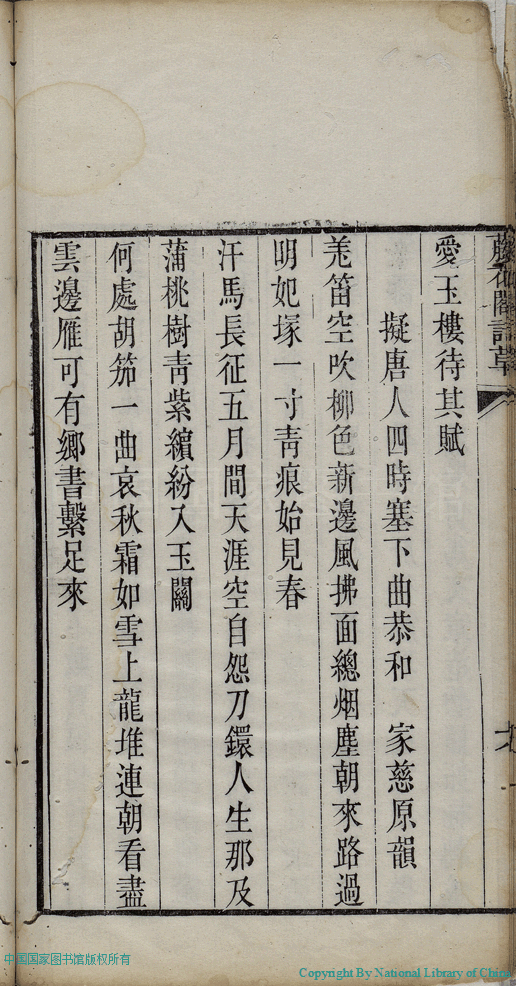 藤花閣詩草
愛玉樓待其賦
擬唐人四時塞下曲恭和 家慈原韻
羌笛空吹柳色新邊風拂面總烟塵朝來路過
明妃塚一寸青痕始見春
汗馬長征五月間天涯空自怨刀鐶人生那及
蒲桃樹青紫繽紛入玉關
何處胡笳一曲哀秋霜如雪上龍堆連朝看盡
雲邊雁可有鄉書繫足來
中国国家图书馆版权所有
Copyright By National Library of China